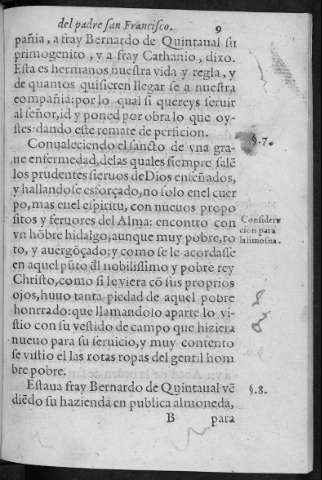 del padre san Francisco. 9
pañia, a fray Bernardo de Quintaual su
primogenito, y a fray Cathanio, dixo.
Esta es hermanos nuestra vida y regla, y
de quantos quisieren llegar se a nuestra
compañia: por lo qual si quereys seruir
al señor, id y poned por obra lo que oy-
stes: dando este remate de perficion.
Conualeciendo el sancto de vna gra-
ue enfermedad, de las quales siempre salẽ
los prudentes sieruos de Dios enseñados,
y hallandose esforçado, no solo en el cuer
po, mas en el espiritu, con nueuos propo
sitos y feruores del Alma: encontro con
vn hõbre hidalgo, aunque muy pobre, ro
to, y auergõçado; y como se le acordasse
en aquel pũto dl nobilissimo y pobre rey
Christo, como si le viera cõ sus proprios
ojos, huuo tanta piedad de aquel pobre
honrrado: que llamandolo aparte lo vi-
stio con su vestido de campo que hiziera
nueuo para su seruicio, y muy contento
se vistio el las rotas ropas del gentil hom
bre pobre.
Estaua fray Bernardo de Quintaual vẽ
diẽdo su hazienda en publica almoneda,
B para
§.7.
Considera
cion para
la limosna.
§.8.